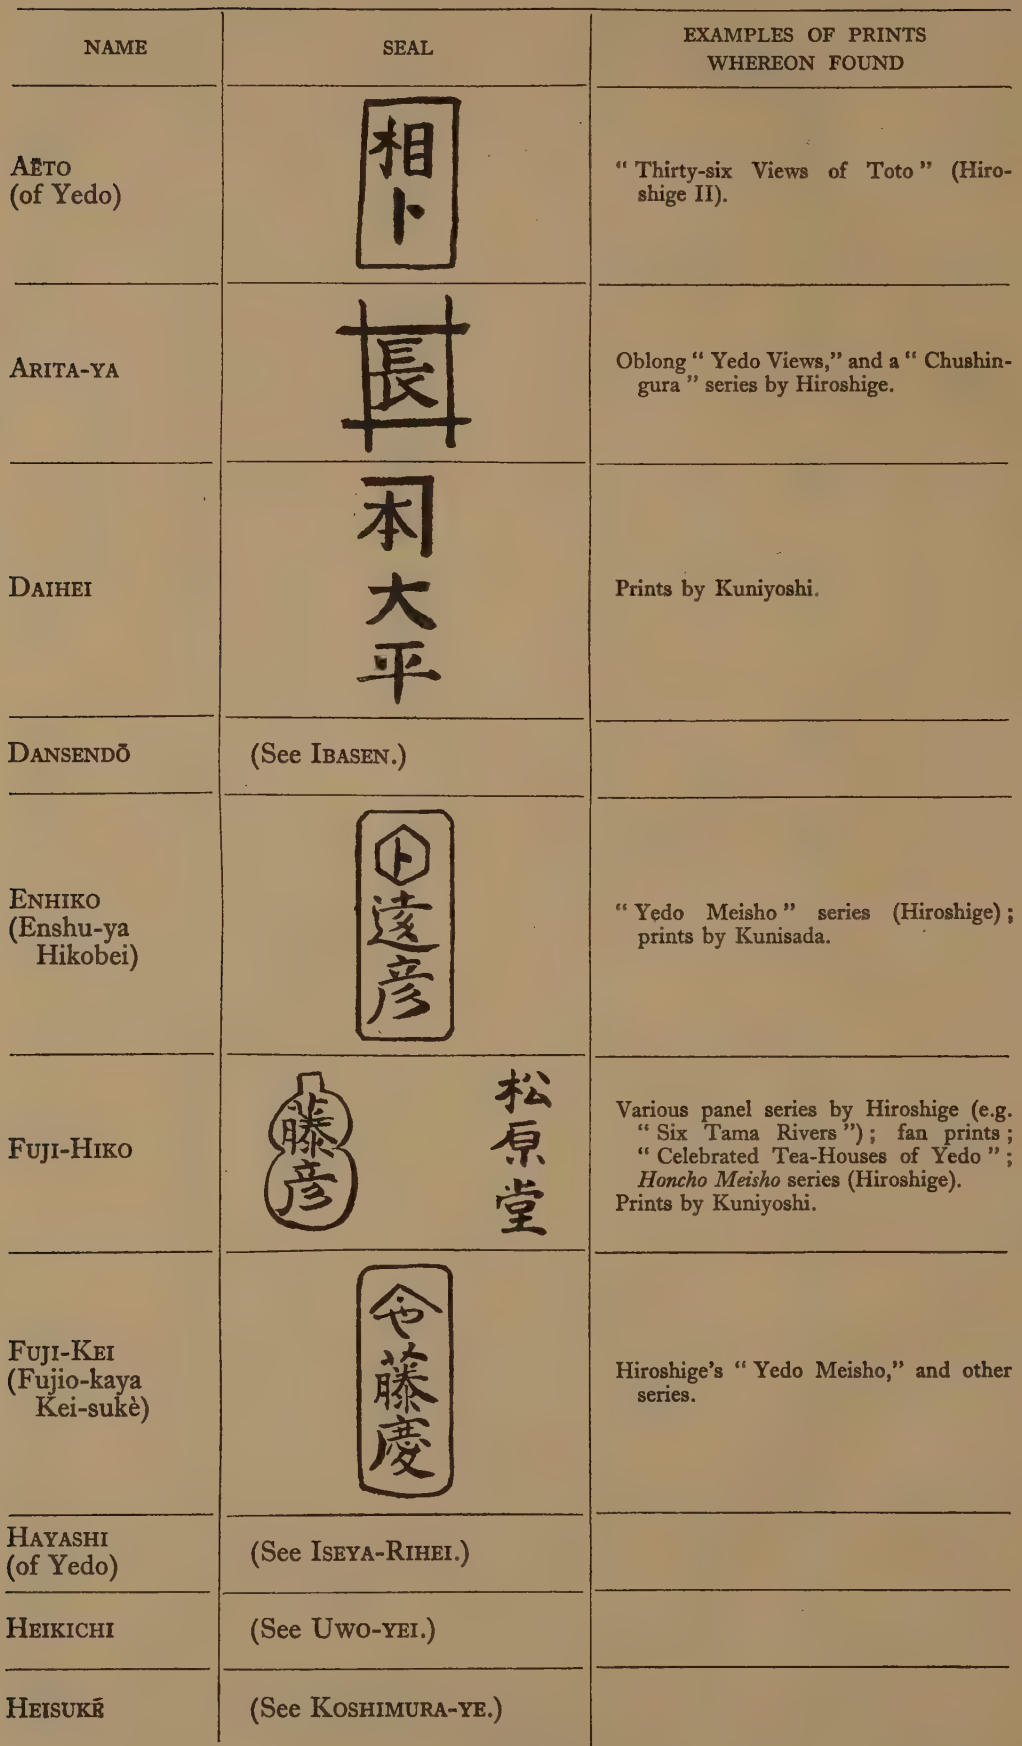 NAME
SEAL
EXAMPLES OF PRINTS
WHEREON FOUND
AĒTO
(of Yedo)
相
ト
“ Thirty-six Views of Toto ” (Hiro-
shige II).
ARITA-YA
長
Oblong “ Yedo Views,” and a “ Chushin-
gura ” series by Hiroshige.
DAIHEI
本
大
平
Prints by Kuniyoshi.
DANSENDŌ
(See IBASEN.)
ENHIKO
(Enshu-ya
Hikobei)
ト
遠
彦
“ Yedo Meisho ” series (Hiroshige) ;
prints by Kunisada.
FUJI-HIKO
藤
彦
松
原
堂
Various panel series by Hiroshige (e.g.
“ Six Tama Rivers ”) ; fan prints ;
“ Celebrated Tea-Houses of Yedo ” ;
Honcho Meisho series (Hiroshige).
Prints by Kuniyoshi.
FUJI-KEI
(Fujio-kaya
Kei-sukè)
藤
慶
Hiroshige’s “ Yedo Meisho,” and other
series.
HAYASHI
(of Yedo)
(See ISEYA-RIHEI.)
HEIKICHI
(See UWO-YEI.)
HEISUKÉ
(See KOSHIMURA-YE.)